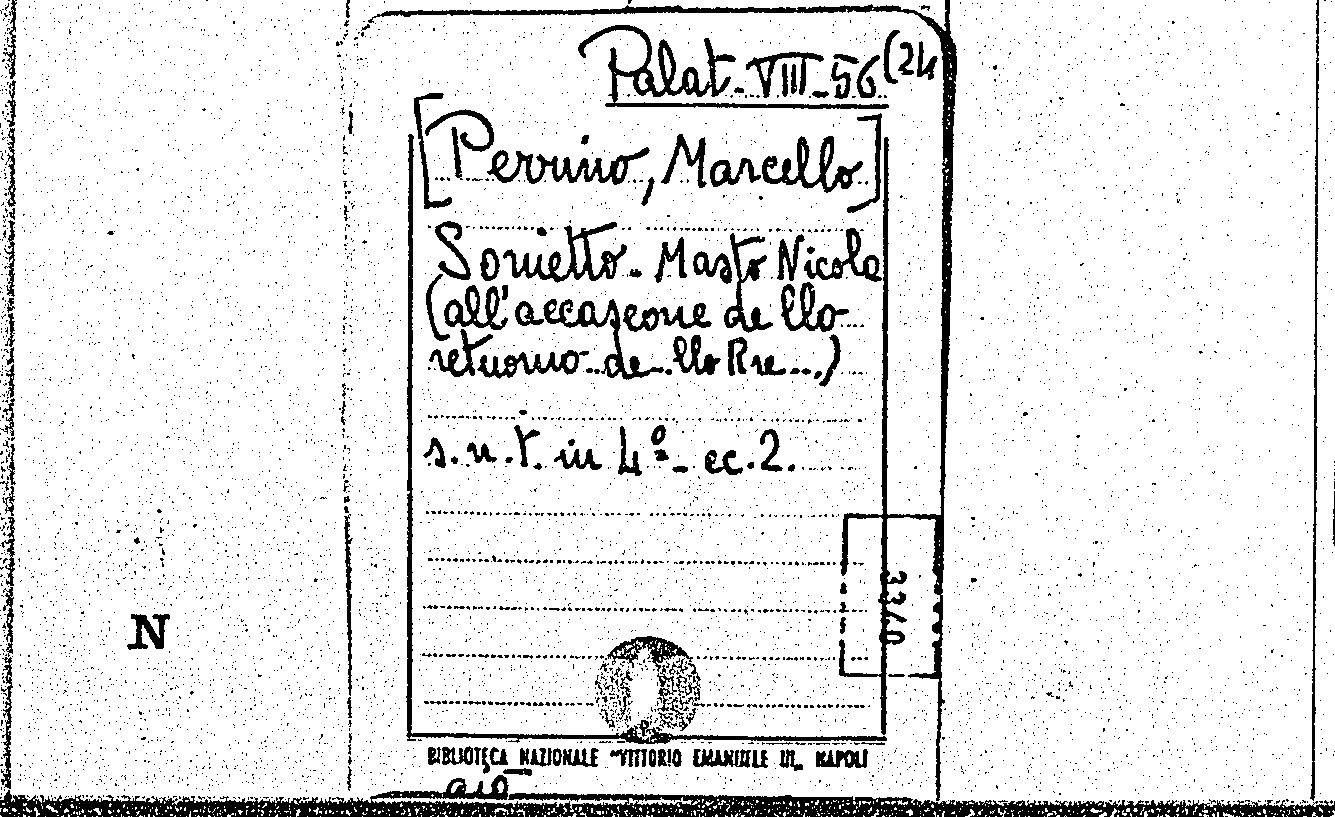 Palat. VIII-56 (24
[Perrino, Marcello]
Sonietto. Masto Nicola
(all'accaseone de llo
retuorno de llo Rre....)
s.n.t. in 4º- cc.2.
3340
N
BIBLIOTECA NAZIONALE "VITTORIO EMANUELE III„ NAPOLI